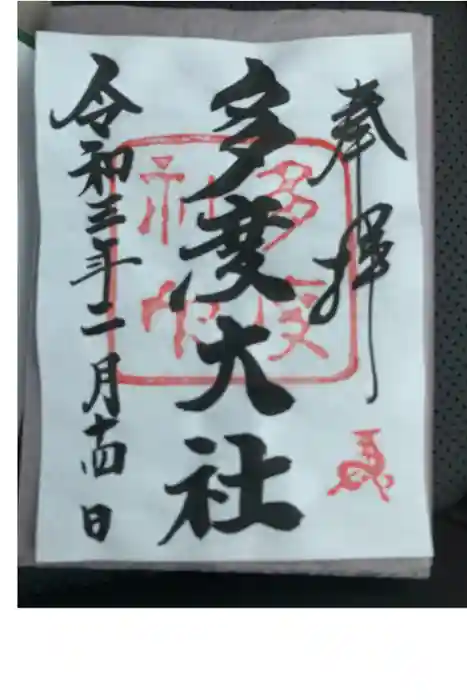 奉拝
多度大社
令和三年二月十四日
多度
神社